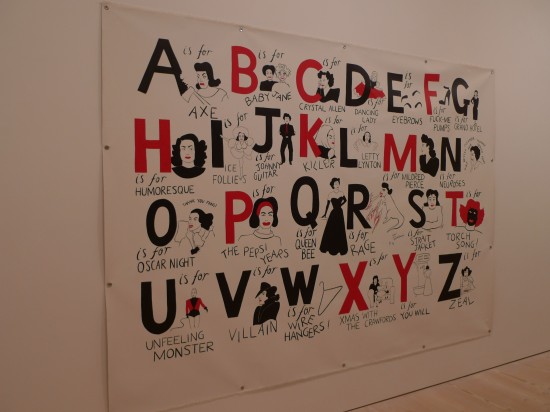 A is for AXE
B is for BABY JANE
C is for CRYSTAL ALLEN
D is for DANCING LADY
E is for EYEBROWS
F is for FUCK-ME PUMPS
G is for GRAND HOTEL
H is for HUMORESQUE
I is for ICE FOLLIES
J is for JOHNNY GUITAR
K is for KILLER
L is for LETTY LYNTON
M is for MILDRED PIERCE
N is for NEUROSES
O is for OSCAR NIGHT
P is for THE PEPSI YEARS
Q is for QUEEN BEE
R is for RAGE
S is for STRAIT JACKET
T is for TORCH SONG!
U is for UNFEELING MONSTER
V is for VILLAIN
W is for WIRE HANGERS!
X is for XMAS WITH THE CRAWFORDS
Y is for YOU WILL
Z is for ZEAL